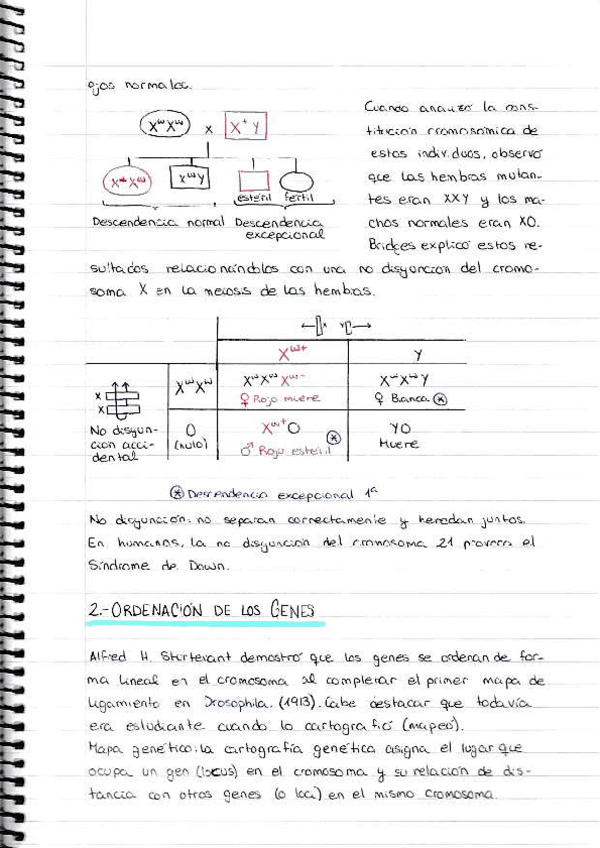 ojos normales.
XʷXʷ x X⁺Y
XʷXʷ XʷY
estéril fértil
Descendencia normal Descendencia
excepcional
Cuando analizó la cons-
titución cromosómica de
estos individuos, observó
que las hembras mutan-
tes eran XXY y los ma-
chos normales eran XO.
Bridges explicó estos re-
sultados relacionándolos con una no disyunción del cromo-
soma X en la meiosis de las hembras.
X Y
Xʷ⁺ Y
X
X
No disyun-
ción acci-
dental
XʷXʷ
XʷXʷXʷ⁺
♀ Rojo muere
XʷXʷY
♀ Blanca ⊛
O
(nulo)
Xʷ⁺O ⊛
♂ Rojo estéril
YO
Muere
⊛ Descendencia excepcional 1ª
No disyunción: no separan correctamente y heredan juntos.
En humanos, la no disyunción del cromosoma 21 provoca el
Síndrome de Down.
2.-ORDENACIÓN DE LOS GENES
Alfred H. Sturtevant demostró que los genes se ordenan de for-
ma lineal en el cromosoma al completar el primer mapa de
ligamiento en Drosophila. (1913). Cabe destacar que todavía
era estudiante cuando lo cartografió (mapeó).
Mapa genético: la cartografía genética asigna el lugar que
ocupa un gen (locus) en el cromosoma y su relación de dis-
tancia con otros genes (o loci) en el mismo cromosoma.